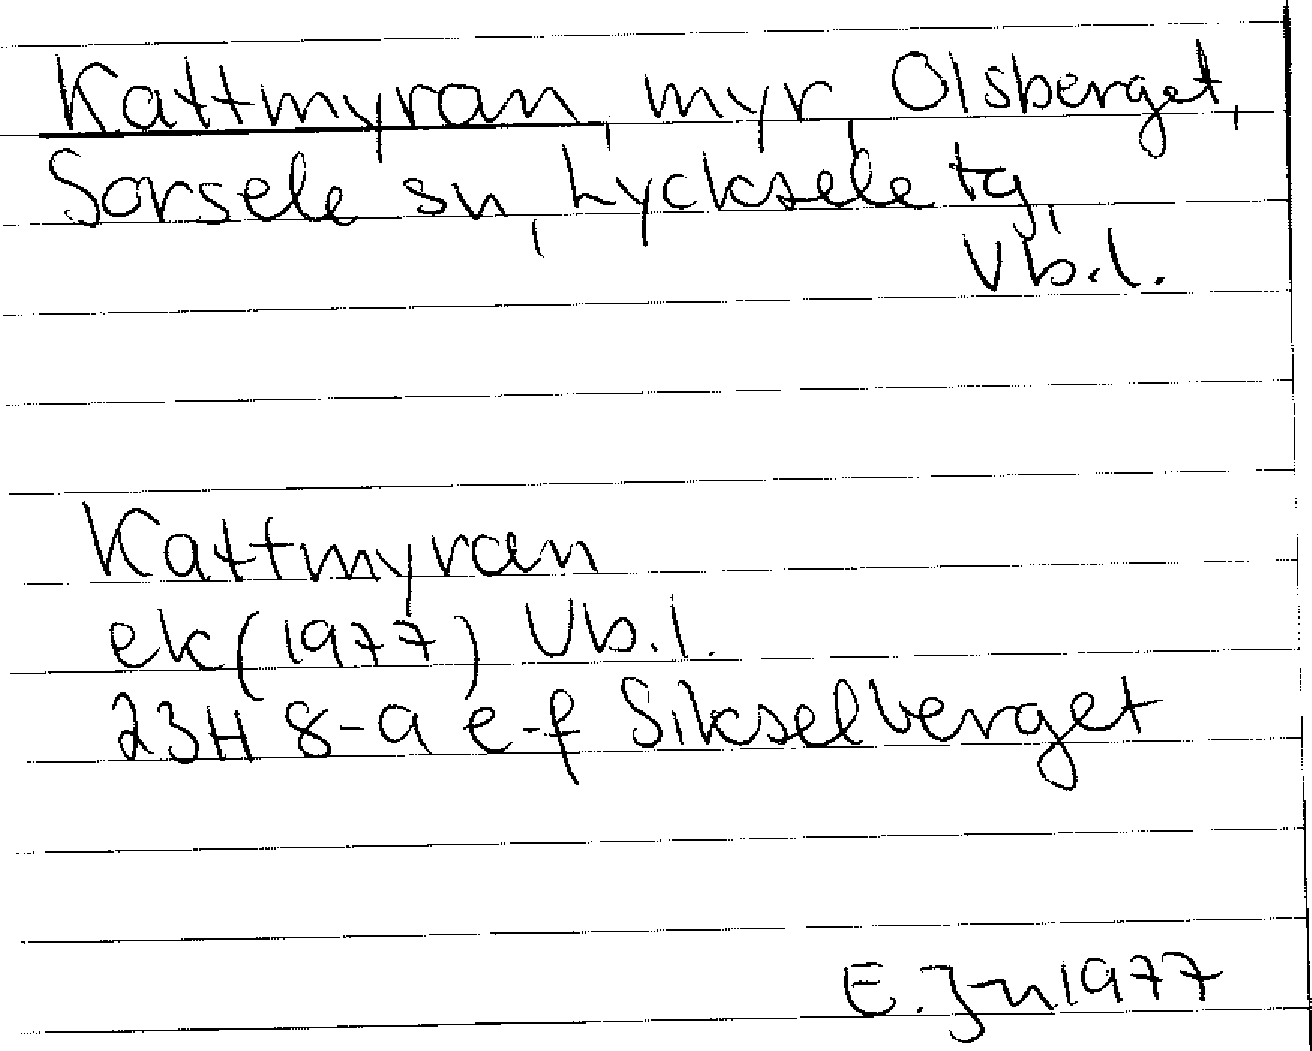 Kattmyran, myr, Olsberget,
Sorsele sn, Lycksele tg,
Vb.l.
Kattmyran
ek (1977) Vb.l.
23H 8-9 e-f Sikselberget
E. J-n 1977